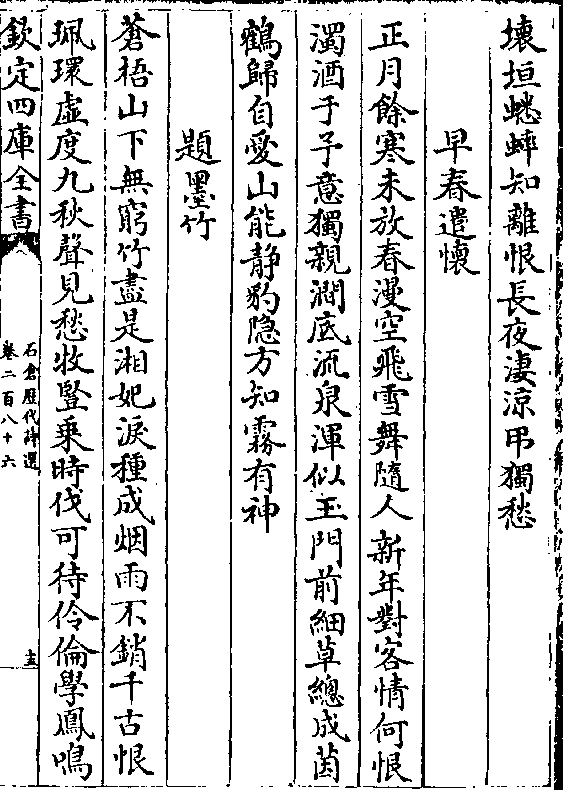 壞垣蟋蟀知離恨長夜淒涼弔獨愁
早春遣懷
正月餘寒未放春漫空飛雪舞隨人新年對客情何恨
濁酒于予意獨親澗底流泉渾似玉門前細草總成茵
鶴歸自愛山能静豹隐方知霧有神
題墨竹
蒼梧山下無窮竹盡是湘妃淚種成烟雨不銷千古恨
珮環虛度九秋聲見愁牧豎乗時伐可待伶倫學鳳鳴
欽定四庫全書
石倉歷代詩選
卷二百八十六
十三